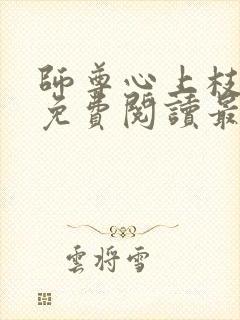 師尊心上枝
免費閱讀最
雲將雪